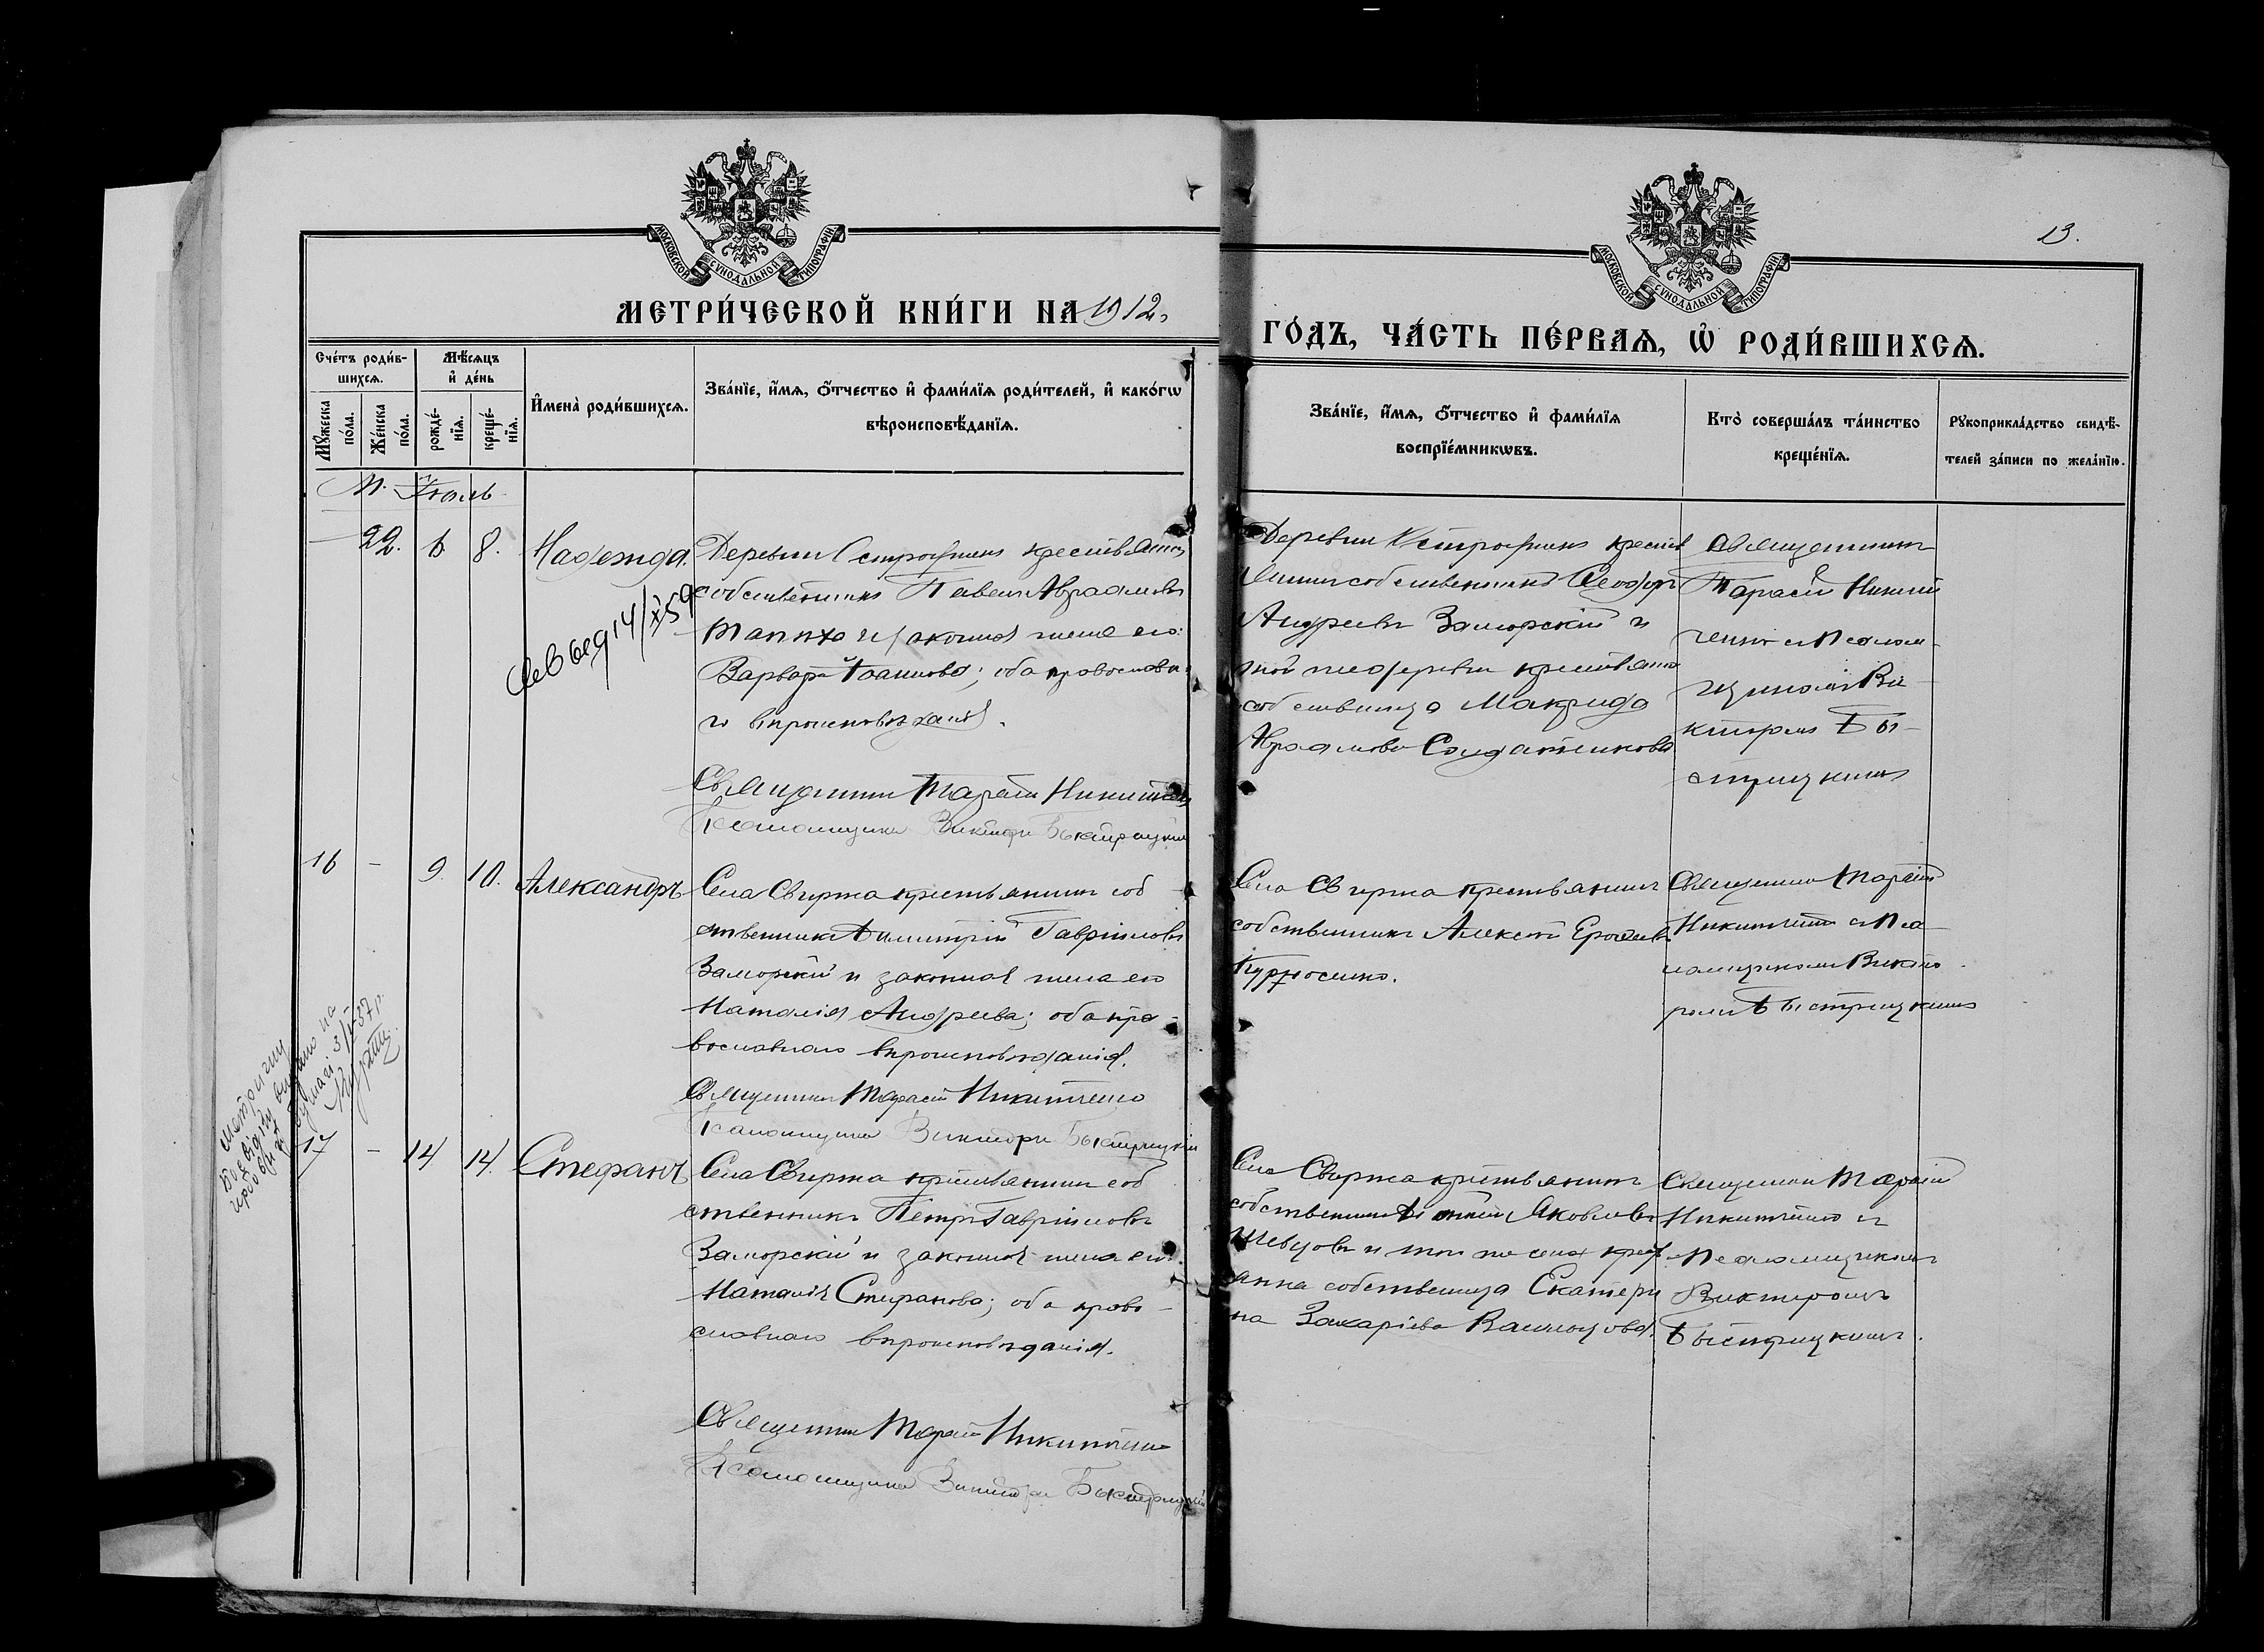 13.
МОСКОВСКОЙ СѴНОДАЛЬНОЙ ТИПОГРАФІИ
МОСКОВСКОЙ СѴНОДАЛЬНОЙ ТИПОГРАФІИ
МЕТРИ́ЧЕСКОЙ КНИ́ГИ НА 1912
ГО́ДЪ, ЧА́СТЬ ПЕ́РВАЯ, Ѡ҆ РОДИ́ВШИХСЯ.
Сче́тъ роди́в-
шихся.
Мꙋ́жеска
по́ла.
Же́нска
по́ла.
Мѣ́сяцъ
и҆ де́нь
рожде́-
нїя.
креще́-
нїя.
И҆мена̀ роди́вшихся.
Зва́нїе, и҆́мя, ѻ҆́тчество и҆ фами́лїя роди́телей, и҆ како́гѡ
вѣроисповѣ́данїя.
Зва́нїе, и҆́мя, ѻ҆́тчество и҆ фами́лїя
воспрїе́мникѡвъ.
Кто̀ соверша́лъ та́инство
креще́нїя.
Рꙋкоприкла́дство свидѣ́-
телей за́писи по жела́нїю.
М. Іюль
22. 6 8. Надежда.
Деревни крестьянинъ
собственникъ Павелъ Авраамовъ
и законная жена его
Варвара Іоаннова; оба православна
го вѣроисповѣданія.
Священникъ Тарасій Никитченко
Псаломщикъ Викторъ Быстрицкій
Деревни крестья
нинъ собственникъ Ѳеодоръ
Андреевъ Заморскій и
той же деревни крестьянка
собственница Макрида
Авраамова Солдатенкова
Священникъ
Тарасій Никит
ченко съ псалом
щикомъ Ви
кторомъ Бы
стрицкимъ
16 - 9. 10. Александръ
Села Свиржа крестьянинъ соб
ственникъ Димитрій Гавріиловъ
Заморскій и законная жена его
Наталія Андреева; оба пра
вославнаго вѣроисповѣданія.
Священникъ Тарасій Никитченко
Псаломщикъ Викторъ Быстрицкій
Села Свиржа крестьянинъ
собственникъ Алексѣй
Священникъ Тарасій
Никитченко съ пса
ломщикомъ Викто
ромъ Быстрицкимъ
17 - 14 14. Стефанъ
Села Свиржа крестьянинъ соб
ственникъ Петръ Гавріиловъ
Заморскій и законная жена его
Наталія Стефанова; оба право
славнаго вѣроисповѣданія.
Священникъ Тарасій Никитченко
Псаломщикъ Викторъ Быстрицкій
Села Свиржа крестьянинъ
собственникъ Яковлевъ
Шевцовъ и того же села крестья
анка собственница Екатери
на Захаріева
Священникъ Тарасій
Никитченко и
псаломщикомъ
Викторомъ
Быстрицкимъ.